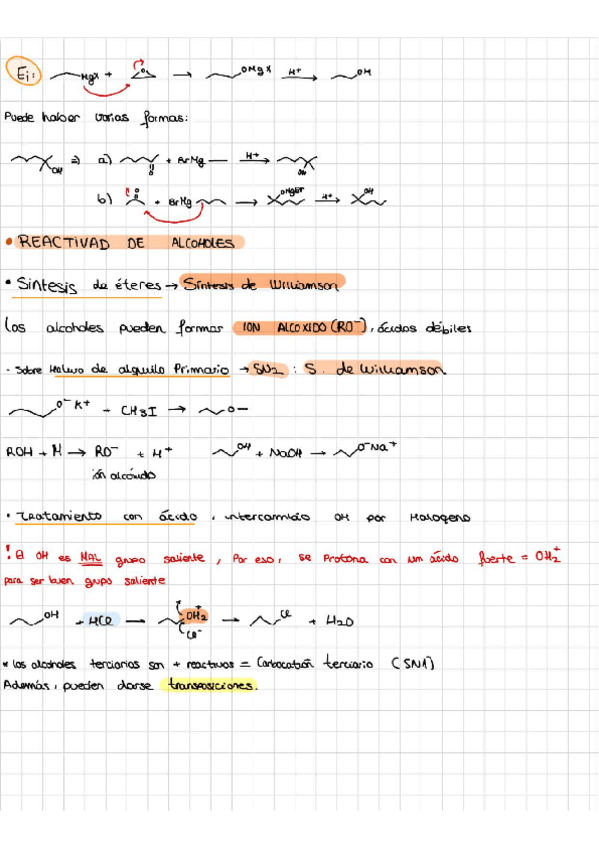 Ej:
MgX + O → OMgX H+ → OH
Puede haber varias formas:
OH ⇒ a) O + BrMg — H+ → OH
b) O + BrMg → OMgBr H+ → OH
• REACTIVAD DE ALCOHOLES
• Síntesis de éteres → Síntesis de Williamson
Los alcoholes pueden formar ION ALCOXIDO (RO⁻), ácidos débiles
- Sobre Haluro de alquilo Primario → SN2 : S. de Williamson
O⁻ K⁺ + CH3I → O—
ROH + M → RO⁻ + H⁺ OH + NaOH → O⁻Na⁺
ión alcóxido
• Tratamiento con ácido, intercambio OH por Halogeno
! El OH es MAL grupo saliente, Por eso, se Protona con un ácido fuerte = OH2⁺
para ser buen grupo saliente
OH + HCl → OH2⁺ Cl⁻ → Cl + H2O
* los alcoholes terciarios son + reactivos = Carbocatión terciario (SN1)
Además, pueden darse transposiciones.